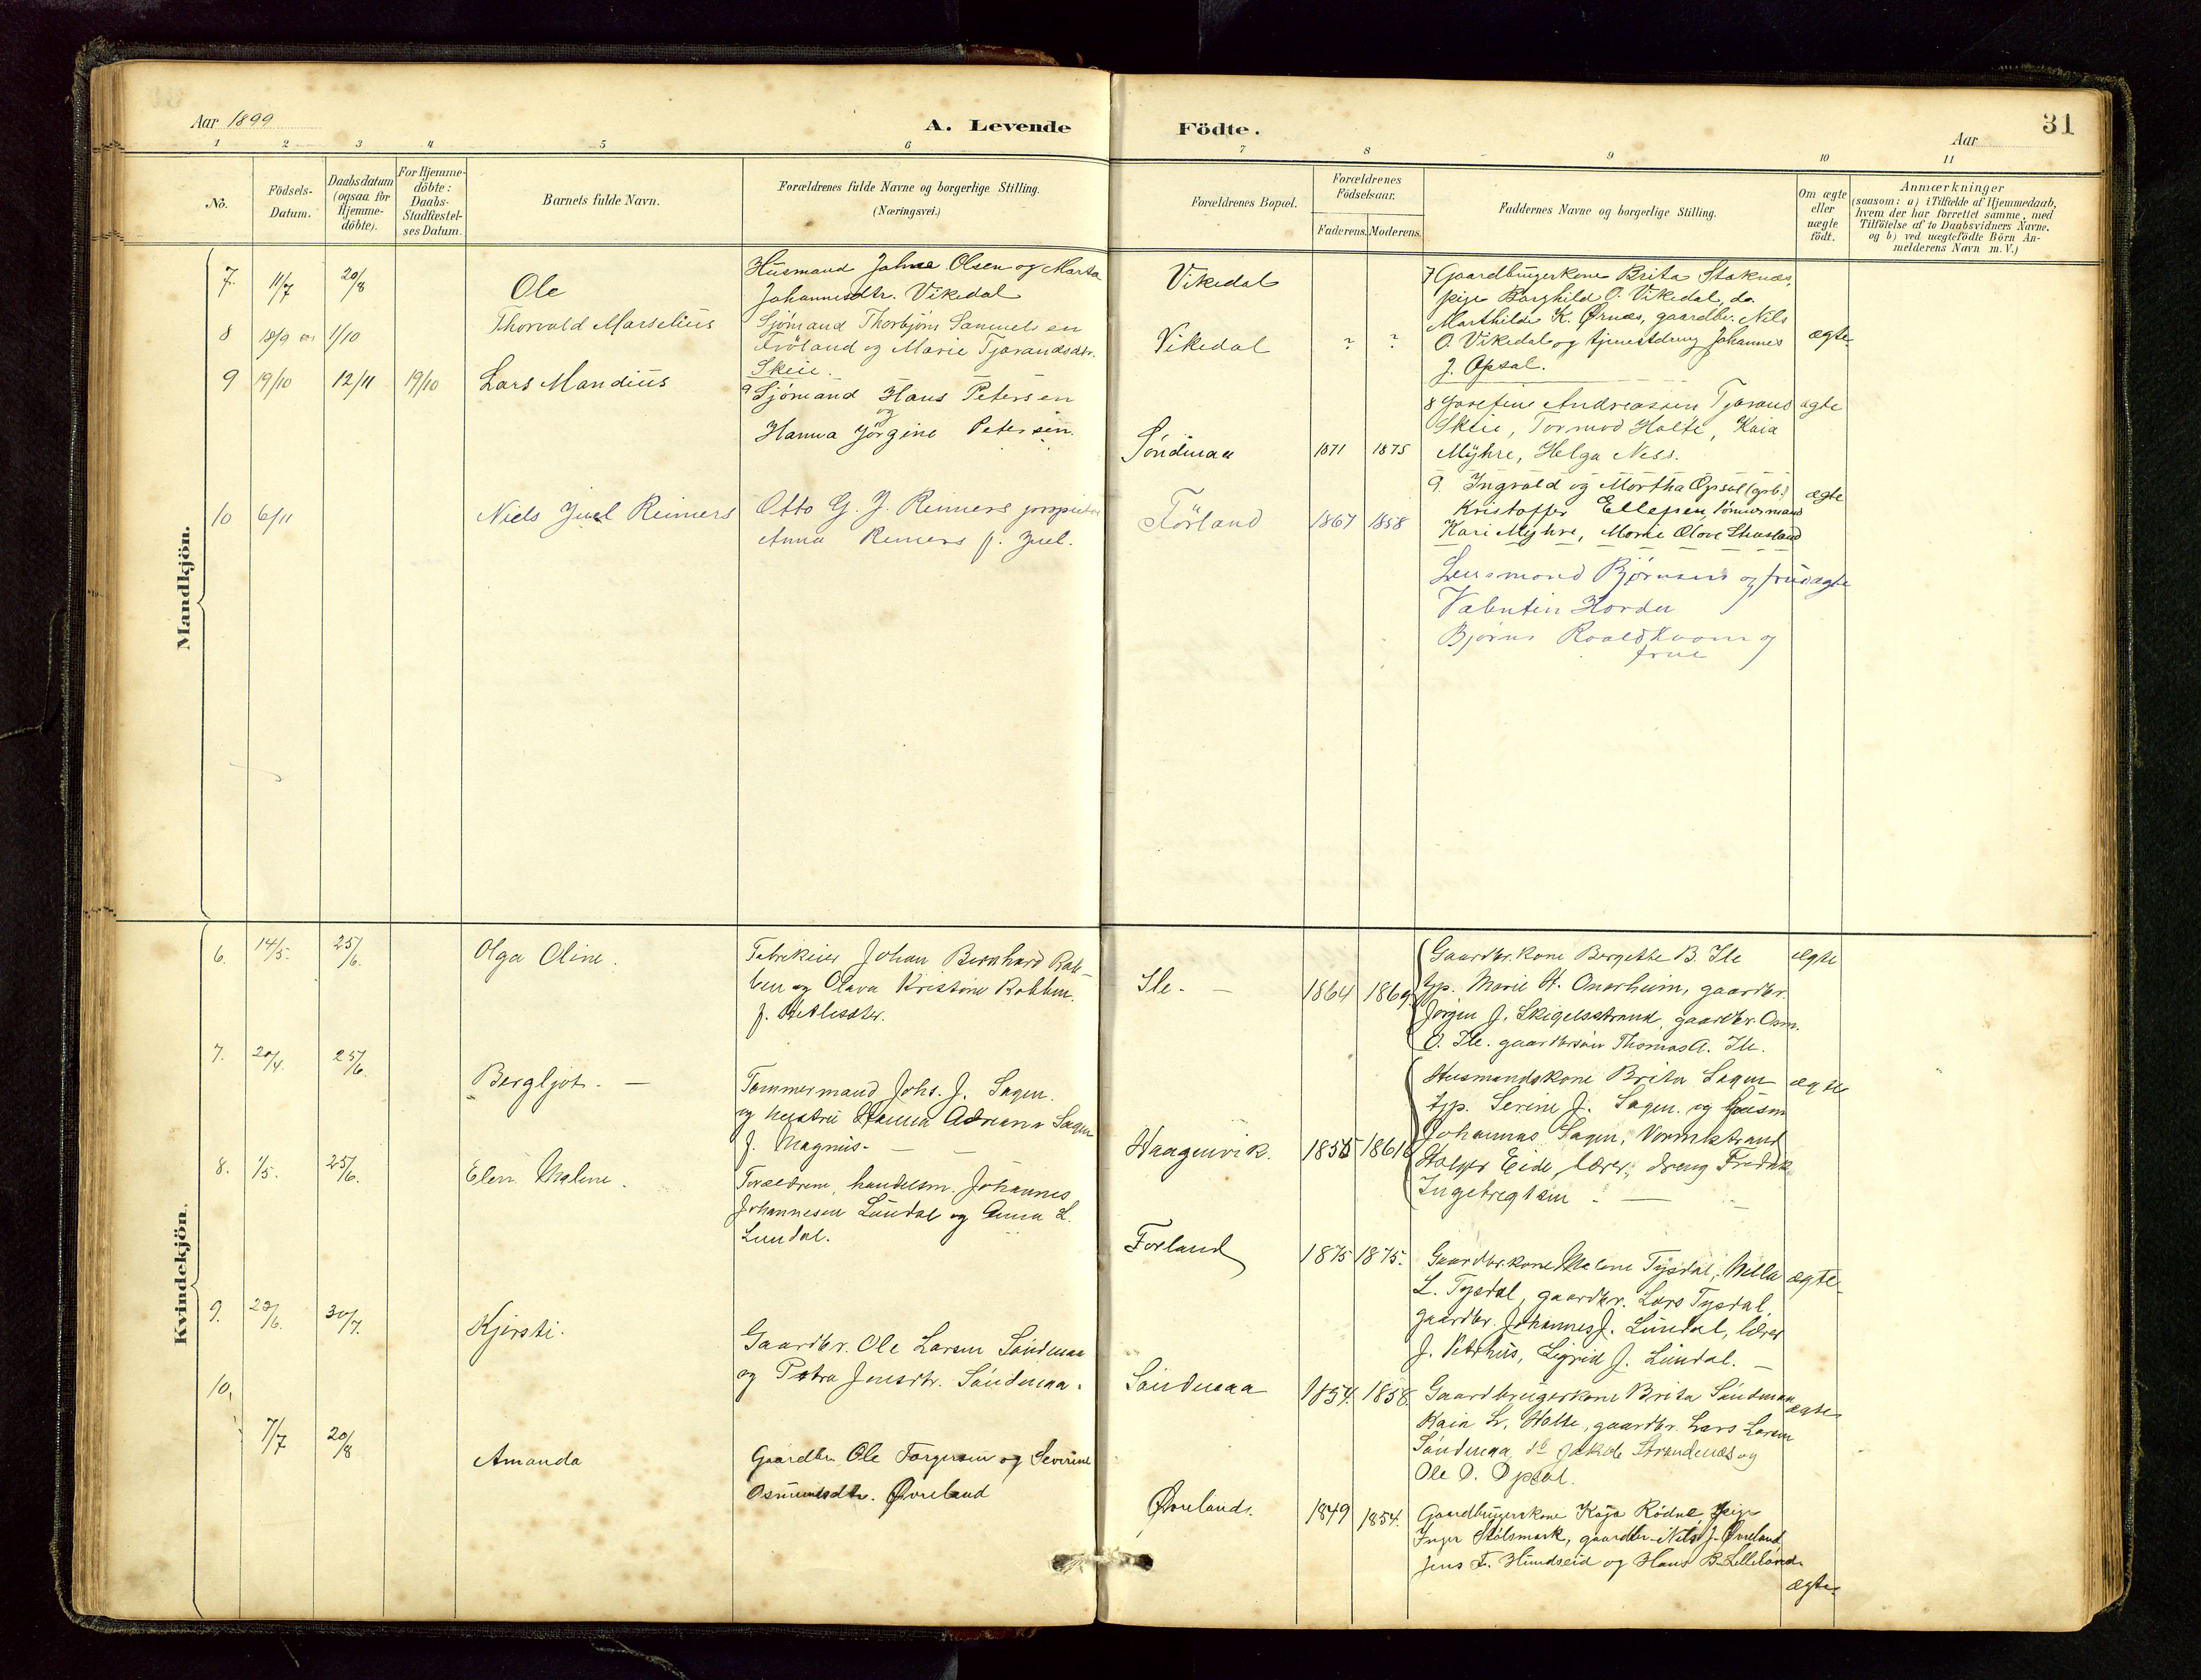 Aar 1899
A. Levende
Födte.
Aar
31
1
2
3
4
5
6
7
8
9
10
11
No.
Födsels-
Datum.
Daabsdatum
(ogsaa for
Hjemme-
döbte).
For Hjemme-
döbte:
Daabs-
Stadfæstel-
ses Datum.
Barnets fulde Navn.
Forældrenes fulde Navne og borgerlige Stilling.
(Næringsvei.)
Forældrenes Bopæl.
Forældrenes
Födselsaar.
Faderens.
Moderens.
Faddernes Navne og borgerlige Stilling.
Om ægte
eller
uægte
födt.
Anmærkninger
(saasom: a) i Tilfælde af Hjemmedaab,
hvem der har forrettet samme, med
Tilföielse af to Daabsvidners Navne.
og b) ved uægtefödte Börn An-
melderens Navn m. V.)
Mandkjön.
7. 11/7 20/8
Ole
Husmand Johne Olsen og Marta
Johannesdtr. Vikedal
Vikedal
7 Gaardbrugerkone Brita Staknæs,
pige Borghild O. Vikedal, do.
Marthilde K. Ørnæs, gaardbr. Nils
O. Vikedal og tjenestdreng Johannes
J. Opsal.
ægte
8 18/9 1/10
Thorvald Marselius
Sjömand Thorbjörn Samuelsen
Fröland og Marie Tjørandsdtr.
Skeie.
Vikedal
? ?
8 Josefine Andreassen Tjørand
Skeie, Tormod Holte, Kaia
Myhre, Helga Ness.
ægte
9 19/10 12/11 19/10
Lars Mandius
9 Sjömand Hans Petersen
og
Hanna Jörgine Petersen.
Söndenaa
1871 1875
9. Ingvald og Martha Opsal (grb.)
Kristoffer Ellefsen, tömmermand
Kari Myhre, Marie Olove
ægte
10 6/11
Niels Juel Reimers
Otto G. J. Reimers proprietær
Anna Reimers f. Juel.
Förland
1867 1858
Lensmand Björnsen og frue
Valentin Hordu
Bjørne Roaldkvam og
frue
ægte
Kvindekjön.
6. 14/5. 25/6.
Olga Oline.
Fabrikeier Johan Bernhard Rak-
ken og Olava Kristine Rakken.
f. Hetlesæter.
Ile. —
1864 1869
Gaardbr.kone Bergitte B. Ile
tjp. Marie H. Onarheim, gaardbr.
Jörgen J. Skigelsstrand, gaardbr. Osm.
O. Ile. gaardbrsön Thomas A. Ile.
ægte
7. 20/4. 25/6.
Bergljot. —
Tømmermand Johs. J. Sagen.
og hustru Hanna Adriana Sagen
f. Magnus. — —
Haagenvik.
1855 1861
Husmandskone Brita Sagen
tjp. Serine J. Sagen. og Husm
Johannes Sagen, Vormestrand
Holger Eide, lærer, dreng Fredrik
Ingebregtsen — —
ægte
8. 1/5. 25/6.
Elen Malene.
Forældrene handelsm. Johannes
Johannesen Lundal og Anna L.
Lundal.
Forland
1875 1875.
Gaardbr.kone Malene Tysdal, Mella
L. Tysdal, gaardbr. Lars Tysdal,
gaardbr. Johannes J. Lundal, lærer
J. Vetrhus, Sigrid J. Lundal. —
ægte
9. 20/6. 30/7.
Kjersti.
Gaardbr. Ole Larsen Söndenaa
og Petra Jensdtr. Söndenaa.
Söndenaa
1854. 1858.
Gaardbrugerkone Brita Söndenaa
Kaia L. Holte, gaardbr. Lars Larsen
Söndenaa, do Jakob Strandenæs og
Ole O. Opsal.
ægte
10. 7/7 20/8
Amanda
Gaardbr. Ole Torgersen og Severine
Osmundsdtr. Øvreland
Øvreland.
1849 1854.
Gaardbrugerkone Kaja Rödne, pige
Inger Stölsmark, gaardbr. Nils J. Øvreland,
Jens T. Hundseid og Hans B. Lilleland.
ægte